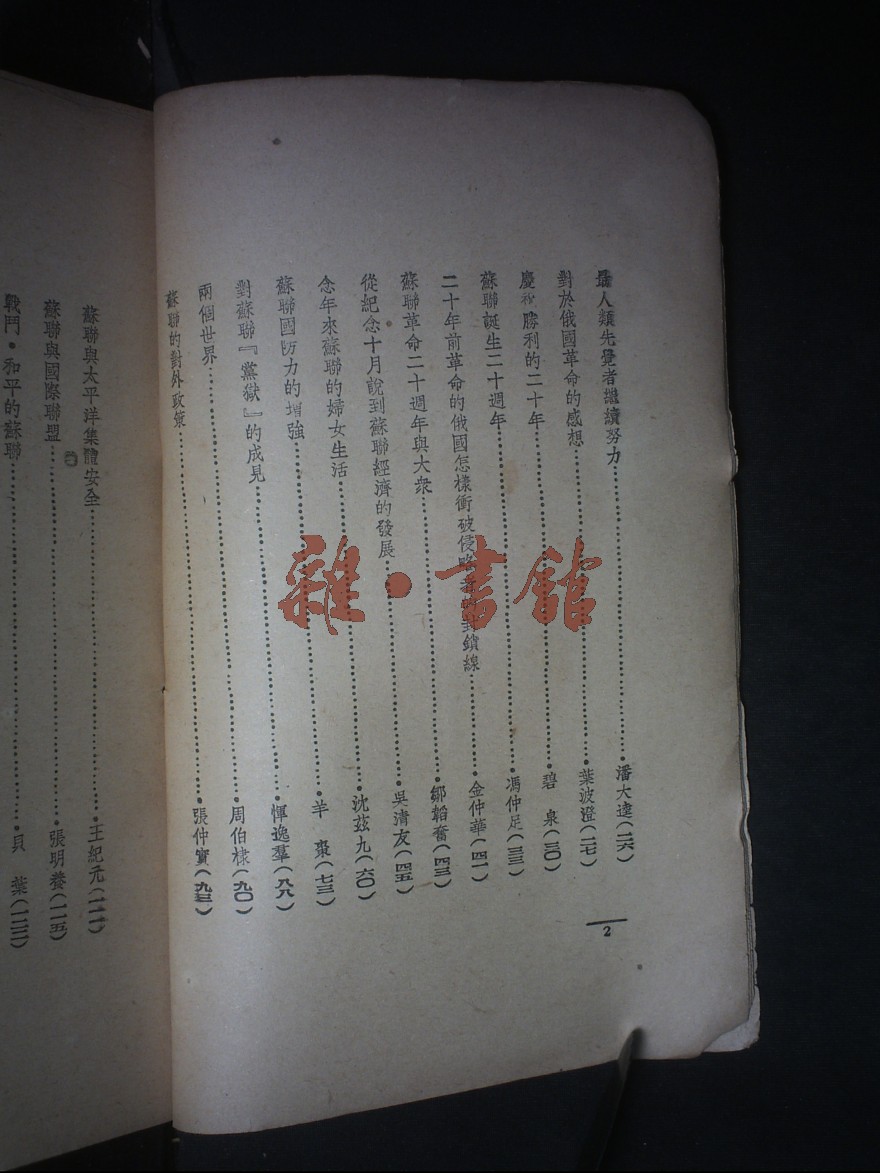 人類先覺者繼續努力……潘大逵(二六)
對於俄國革命的感想……葉波澄(二七)
慶祝勝利的二十年……碧 泉(三〇)
蘇聯誕生二十週年……馮仲足(三三)
二十年前革命的俄國怎樣衝破侵略者的封鎖線……金仲華(四一)
蘇聯革命二十週年與大衆……鄒韜奮(四三)
從紀念十月說到蘇聯經濟的發展……吳清友(四五)
念年來蘇聯的婦女生活……沈茲九(六〇)
蘇聯國防力的增強……羊 棗(七三)
對蘇聯『黨獄』的成見……惲逸羣(八八)
兩個世界……周伯棣(九〇)
蘇聯的對外政策……張仲實(九三)
2
蘇聯與太平洋集體安全……王紀元(一一一)
蘇聯與國際聯盟……張明養(一一五)
戰鬥・和平的蘇聯……貝 葉(一二三)
雜・書館